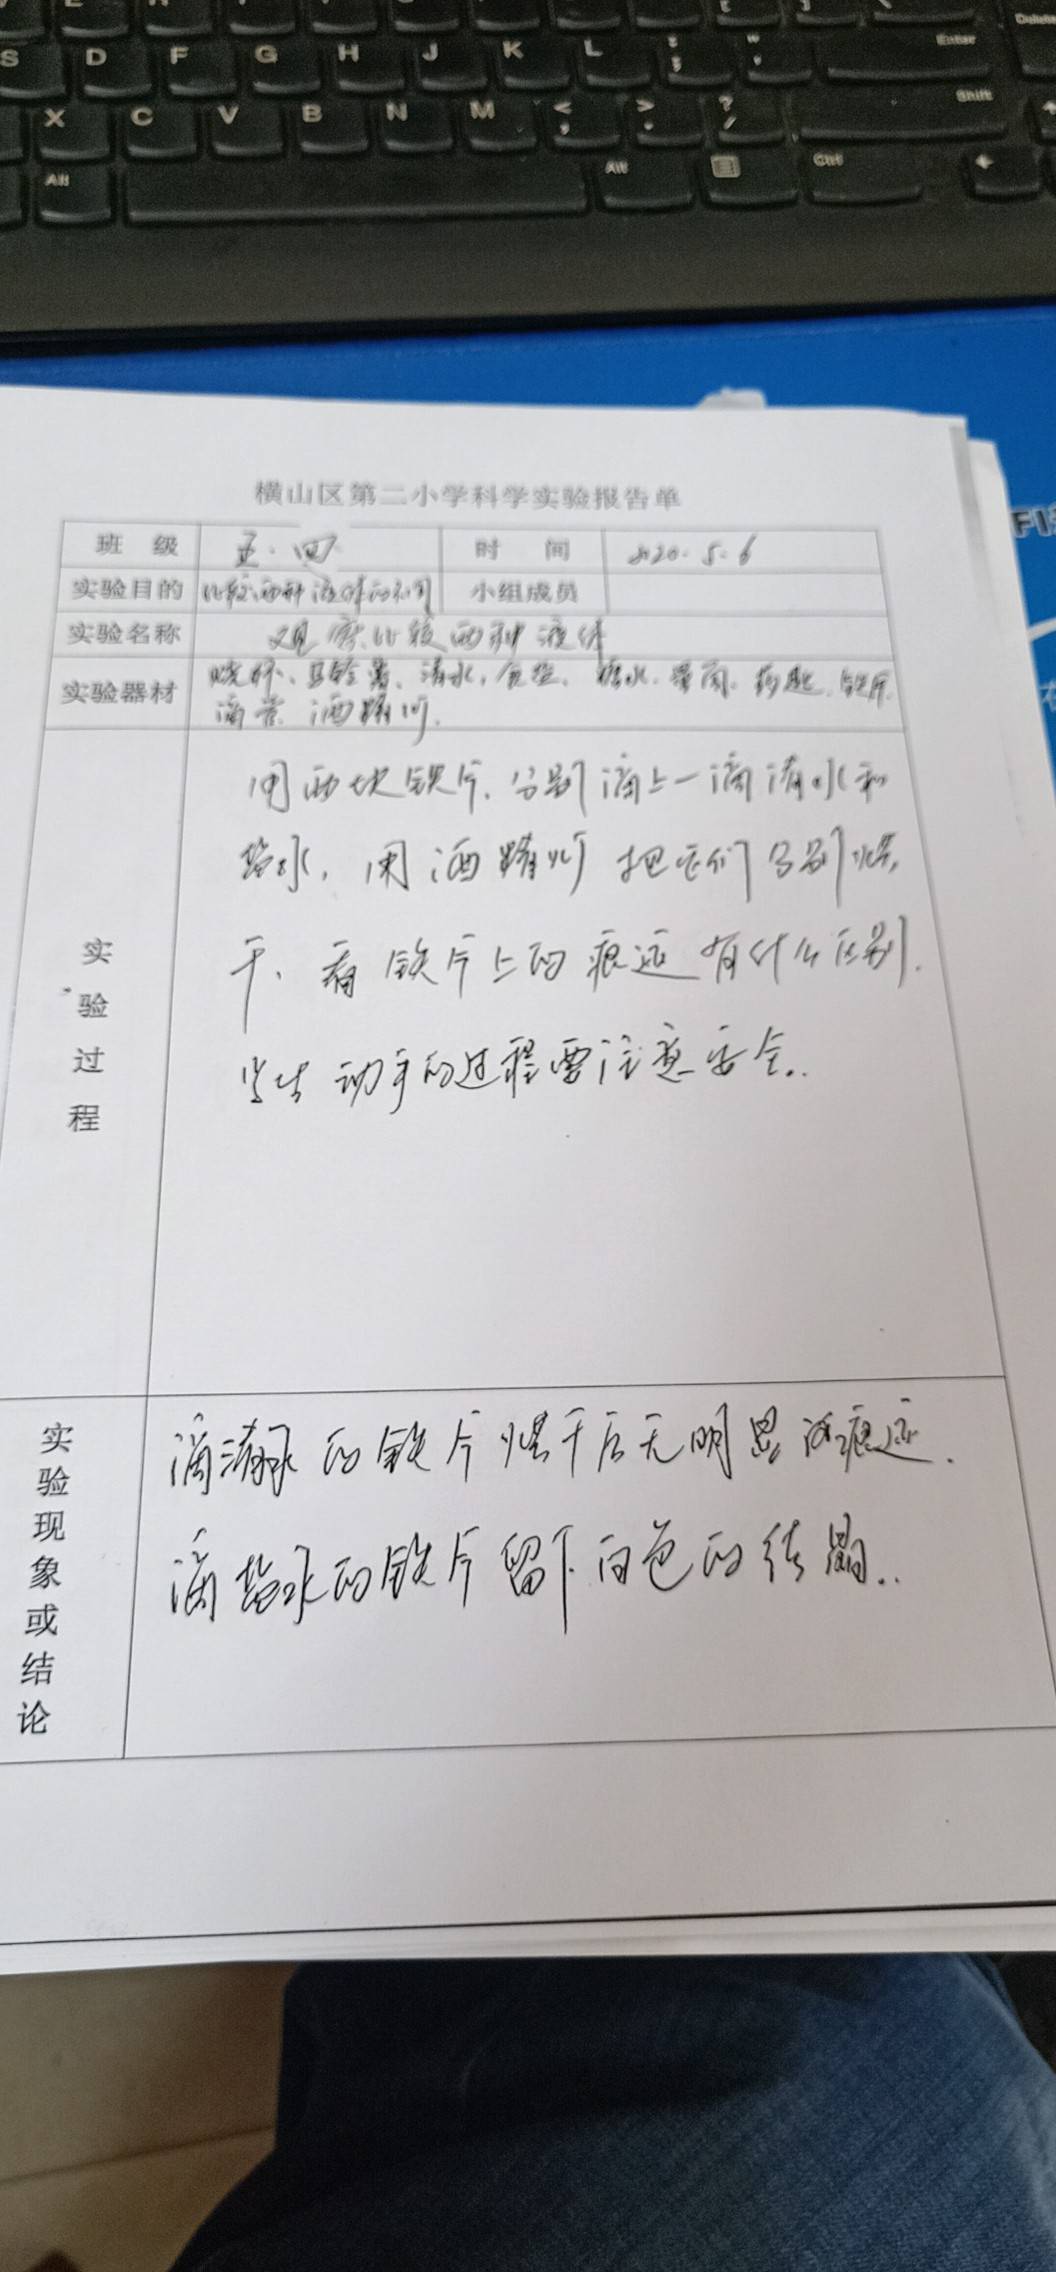 S D F G H J K L : ; " ' Enter
Delete
X C V B N M < , > . ? / Shift
Alt Alt Ctrl
横山区第二小学科学实验报告单
班 级 五·四 时 间 2020.5.6
实验目的 比较两种液体的不同 小组成员
实验名称 观察比较两种液体
实验器材 烧杯、马铃薯、清水、食盐、糖水、量筒、药匙、铁片
滴管 酒精灯.
实验过程
用两块铁片、分别滴上一滴清水和
盐水,用酒精灯把它们分别烘
干、看铁片上的痕迹有什么区别.
学生动手的过程要注意安全.
实验现象或结论
滴清水的铁片烘干后无明显 痕迹.
滴盐水的铁片留下白色的结晶..